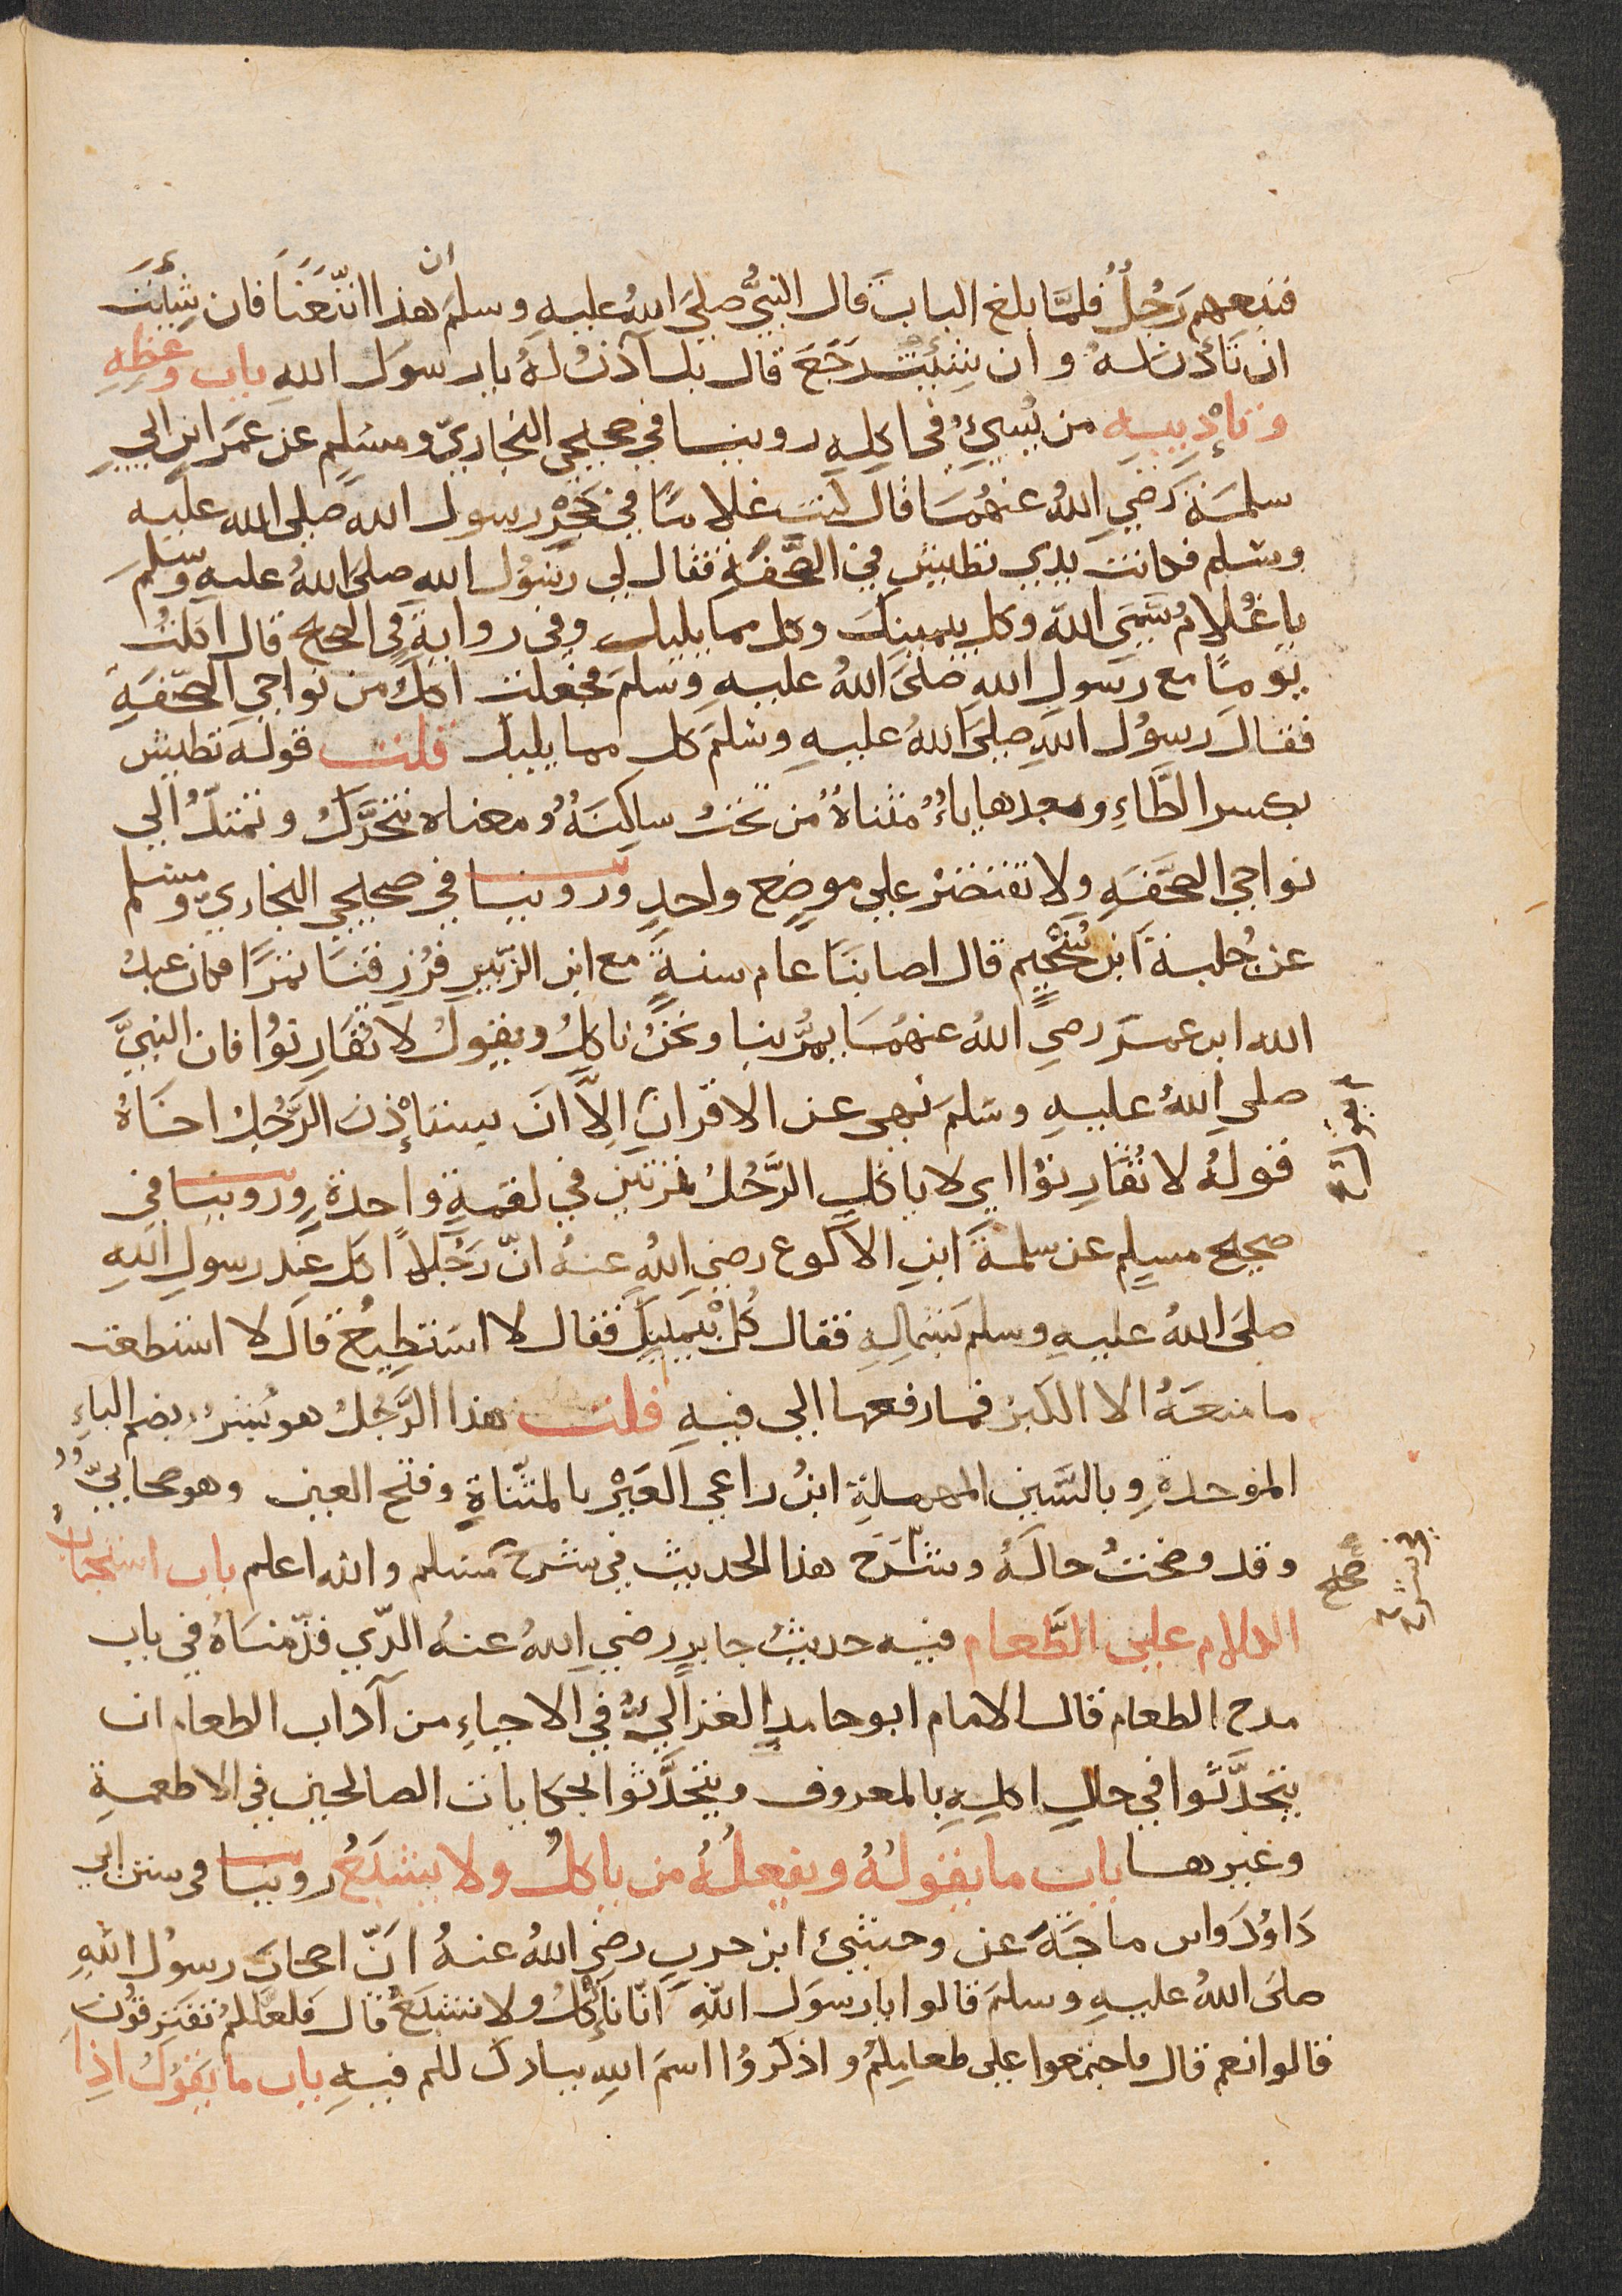 فتبعهم رَجُلٌ فلمَّا بلغ البابَ قال النبيُّ صلىَ اللهُ عليهِ وسلم ان هذا اتَّبَعَنَا فان شِئتَ
ان تَأذن لهُ وان شِئتَ رَجَعَ قال بل آذنُ لهُ يا رسوَل اللهِ باب وعظِهِ
وتَاْدِيبِهِ من يُسِيُ في اكلِهِ روينا في صحيحي البخاريّ ومسلِم عن عمَرَ ابنِ ابي
سلمَةَ رَضي اللهُ عنهُمَا قال كنتُ غلامًا في حَجْرِ رسول اللهِ صلى الله عليه
وسلم فكانت يدي تطيشُ في الصَّحفةِ فقال لي رسُوُل اللهِ صلىَ اللهُ عليهِ وسلمَ
يا غُلامُ سَمِّ اللهَ وكل بيمينكَ وكل مما يليك وفي روايةٍ في الصحيح قال اكلتُ
يَومًا مع رسَولِ اللهِ صلىَ اللهُ عليهِ وسَلمَ فجعلتُ اكلُ من نواحي الصَّحفَةِ
فقال رسوُل اللهِ صلىَ اللهُ عليهِ وسَلمَ كل مما يليك قلت قوله تطيشُ
بكسر الطَّاءِ وبعدها ياءٌ مثناةٌ من تحتُ ساكِنَةٌ ومعناه تتحرَّكُ وتمتدُّ الي
نواحي الصحَّفَةِ ولا تقتصرُ على موضِع واحدٍ وروينا في صحيحي البخاريّ ومسلم
عن جُبلةَ ابن سُحَيْمٍ قال اصابَنَا عام سنةٍ مع ابن الزبّيرِ فرُزِقنَا تمرًا فكان عبدُ
الله ابن عمَرَ رضي اللهُ عنهُمَا يمُرُّ بنا ونحَنُ ناكلُ ويقولُ لا تُقَارِنوُا فان النبيَّ
صلى اللهُ عليهِ وسلمَ نهى عن الاقرانِ الاَّ ان يستاْذنَ الرَّجُلُ اخَاهُ
قولهُ لا تُقَارِنوُا اي لا ياكلِ الرَّجُلُ تمرتَينِ في لقمَةٍ واحدةٍ وروينا في
صحيح مسلِم عن سلمةَ ابنِ الاكوع رضي اللهُ عنهُ انّ رَجُلاً اكلَ عندَ رسولِ اللهِ
صلىَ اللهُ عليهِ وسلم بشمالِهِ فقال كُلْ بيمينِكَ فقال لا استطِيعُ قال لا استطعت
ما منعَهُ الا الكبرُ فما رفعها الى فيهِ قلت هذا الرَّجُلُ هو بُسْرُ بضم الباءِ
الموحدةِ وبالسَّينِ المهملةِ ابنُ راعي العَيْرِ بالمثَنّاةِ وفتح العين وهو صحَابيٌّ
وقد وضحتُ حالهُ وشَرَحَ هذا الحديث في شرح مسلم والله اعلم باب استحباب
الكلام على الطَّعام فيهِ حديثُ جابرٍ رضي اللهُ عنهُ الذّي قدّمنَاهُ في باب
مدح الطعام قال الامام ابو حامدٍ الغزاليُّ في الاحياءِ من آداب الطعام ان
يتحدَّثوا في حالِ اكلِهِ بالمعروف ويتحَدَّثوا بحكايات الصالحين في الاطعمةِ
وغيرها باب ما يقولهُ ويفعلُهُ من ياكلُ ولا يشبَعُ روينا في سنن ابي
دَاوُدَ وابن ماجَةَ عن وحشيّ ابن حربٍ رضي اللهُ عنهُ انّ اصحابَ رسولِ اللهِ
صلىَ اللهُ عليهِ وسلمَ قالوا يا رسوَل اللهِ انّا نَاْكلُ ولا نشبَعُ قال فلعلَّكمُ تفترِقوُنَ
قالوا نعم قال فاجتمعوا على طعامِكمُ واذكرُوا اسمَ اللهِ يبارك لكم فيهِ باب ما يقوُلُ اذِا